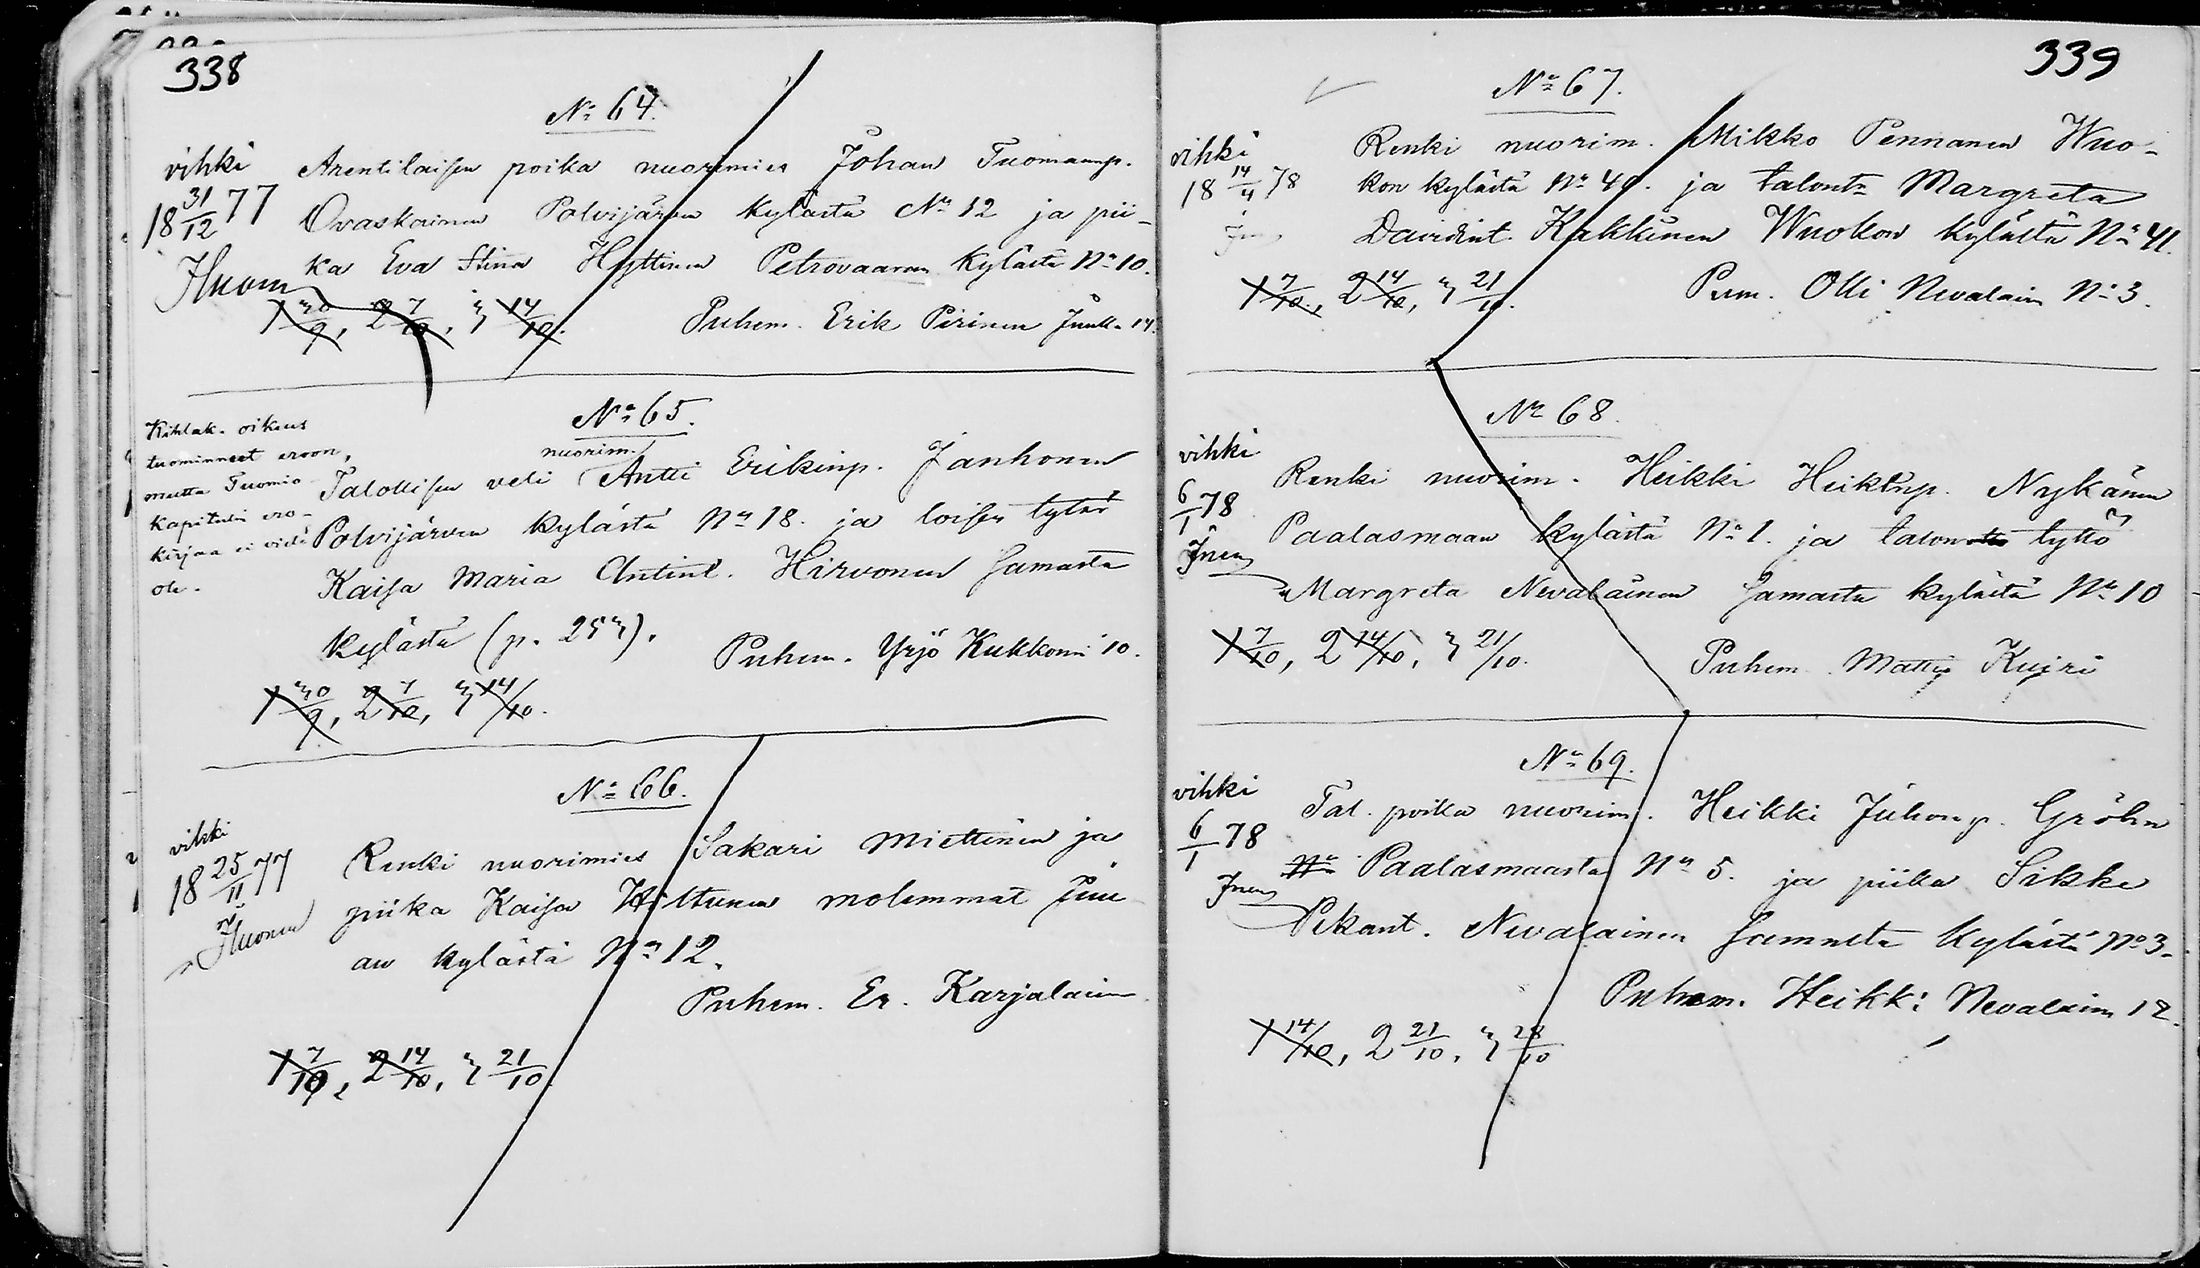 338
No 64.
vihki
18 31/12 77
Huom
Arentilaisen poika nuorimies Johan Tuomaanp.
Ovaskainen Polvijärven kylästä No 12 ja pii-
ka Eva Stina Hyttinen Petrovaaran kylästä No 10.
1 30/9, 2 7/10, 3 14/10.
Puhem. Erik Pirinen Juuka 14.
No 65.
Kihlak. oikeus
tuominneet eroon,
mutta Tuomio
kapitulin ero-
kirjaa ei vielä
ole.
nuorim.
Talollisen veli Antti Erikinp. Janhonen
Polvijärven kylästä No 18. ja loisen tytär
Kaisa Maria Antint. Hirvonen samasta
kylästä (p. 253).
Puhem. Yrjö Kukkonen 10.
1 30/9, 2 7/10, 3 14/10.
No 66.
vihki
18 25/11 77
Renki nuorimies Sakari Miettinen ja
piika Kaisa Hiltunen molemmat Juu
an kylästä No 12.
Puhem. Er. Karjalainen
1 7/10, 2 14/10, 3 21/10.
339
No 67.
vihki
18 14/4 78
Renki nuorim. Mikko Pennanen Wuo-
kon kylästä No 40. ja talont. Margreta
Davidint. Kakkinen Wuokon kylästä No 41.
1 7/10, 2 14/10, 3 21/10.
Pum. Olli Nevalain No 3.
No 68.
vihki
6/1 78
Renki nuorim. Heikki Heikinp. Nykänen
Paalasmaan kylästä No 1. ja talon tyttö
Margreta Nevalainen samasta kylästä No 10
1 7/10, 2 14/10, 3 21/10.
Puhem. Mattis Kujri
No 69.
vihki
6/1 78
Tal. poika nuorim. Heikki Juhonp. Gröhn
No Paalasmaasta No 5. ja piika Sikke
Pekant. Nevalainen samasta kylästä No 3.
Puhem. Heikki Nevalain 12.
1 14/10, 2 21/10, 3 28/10